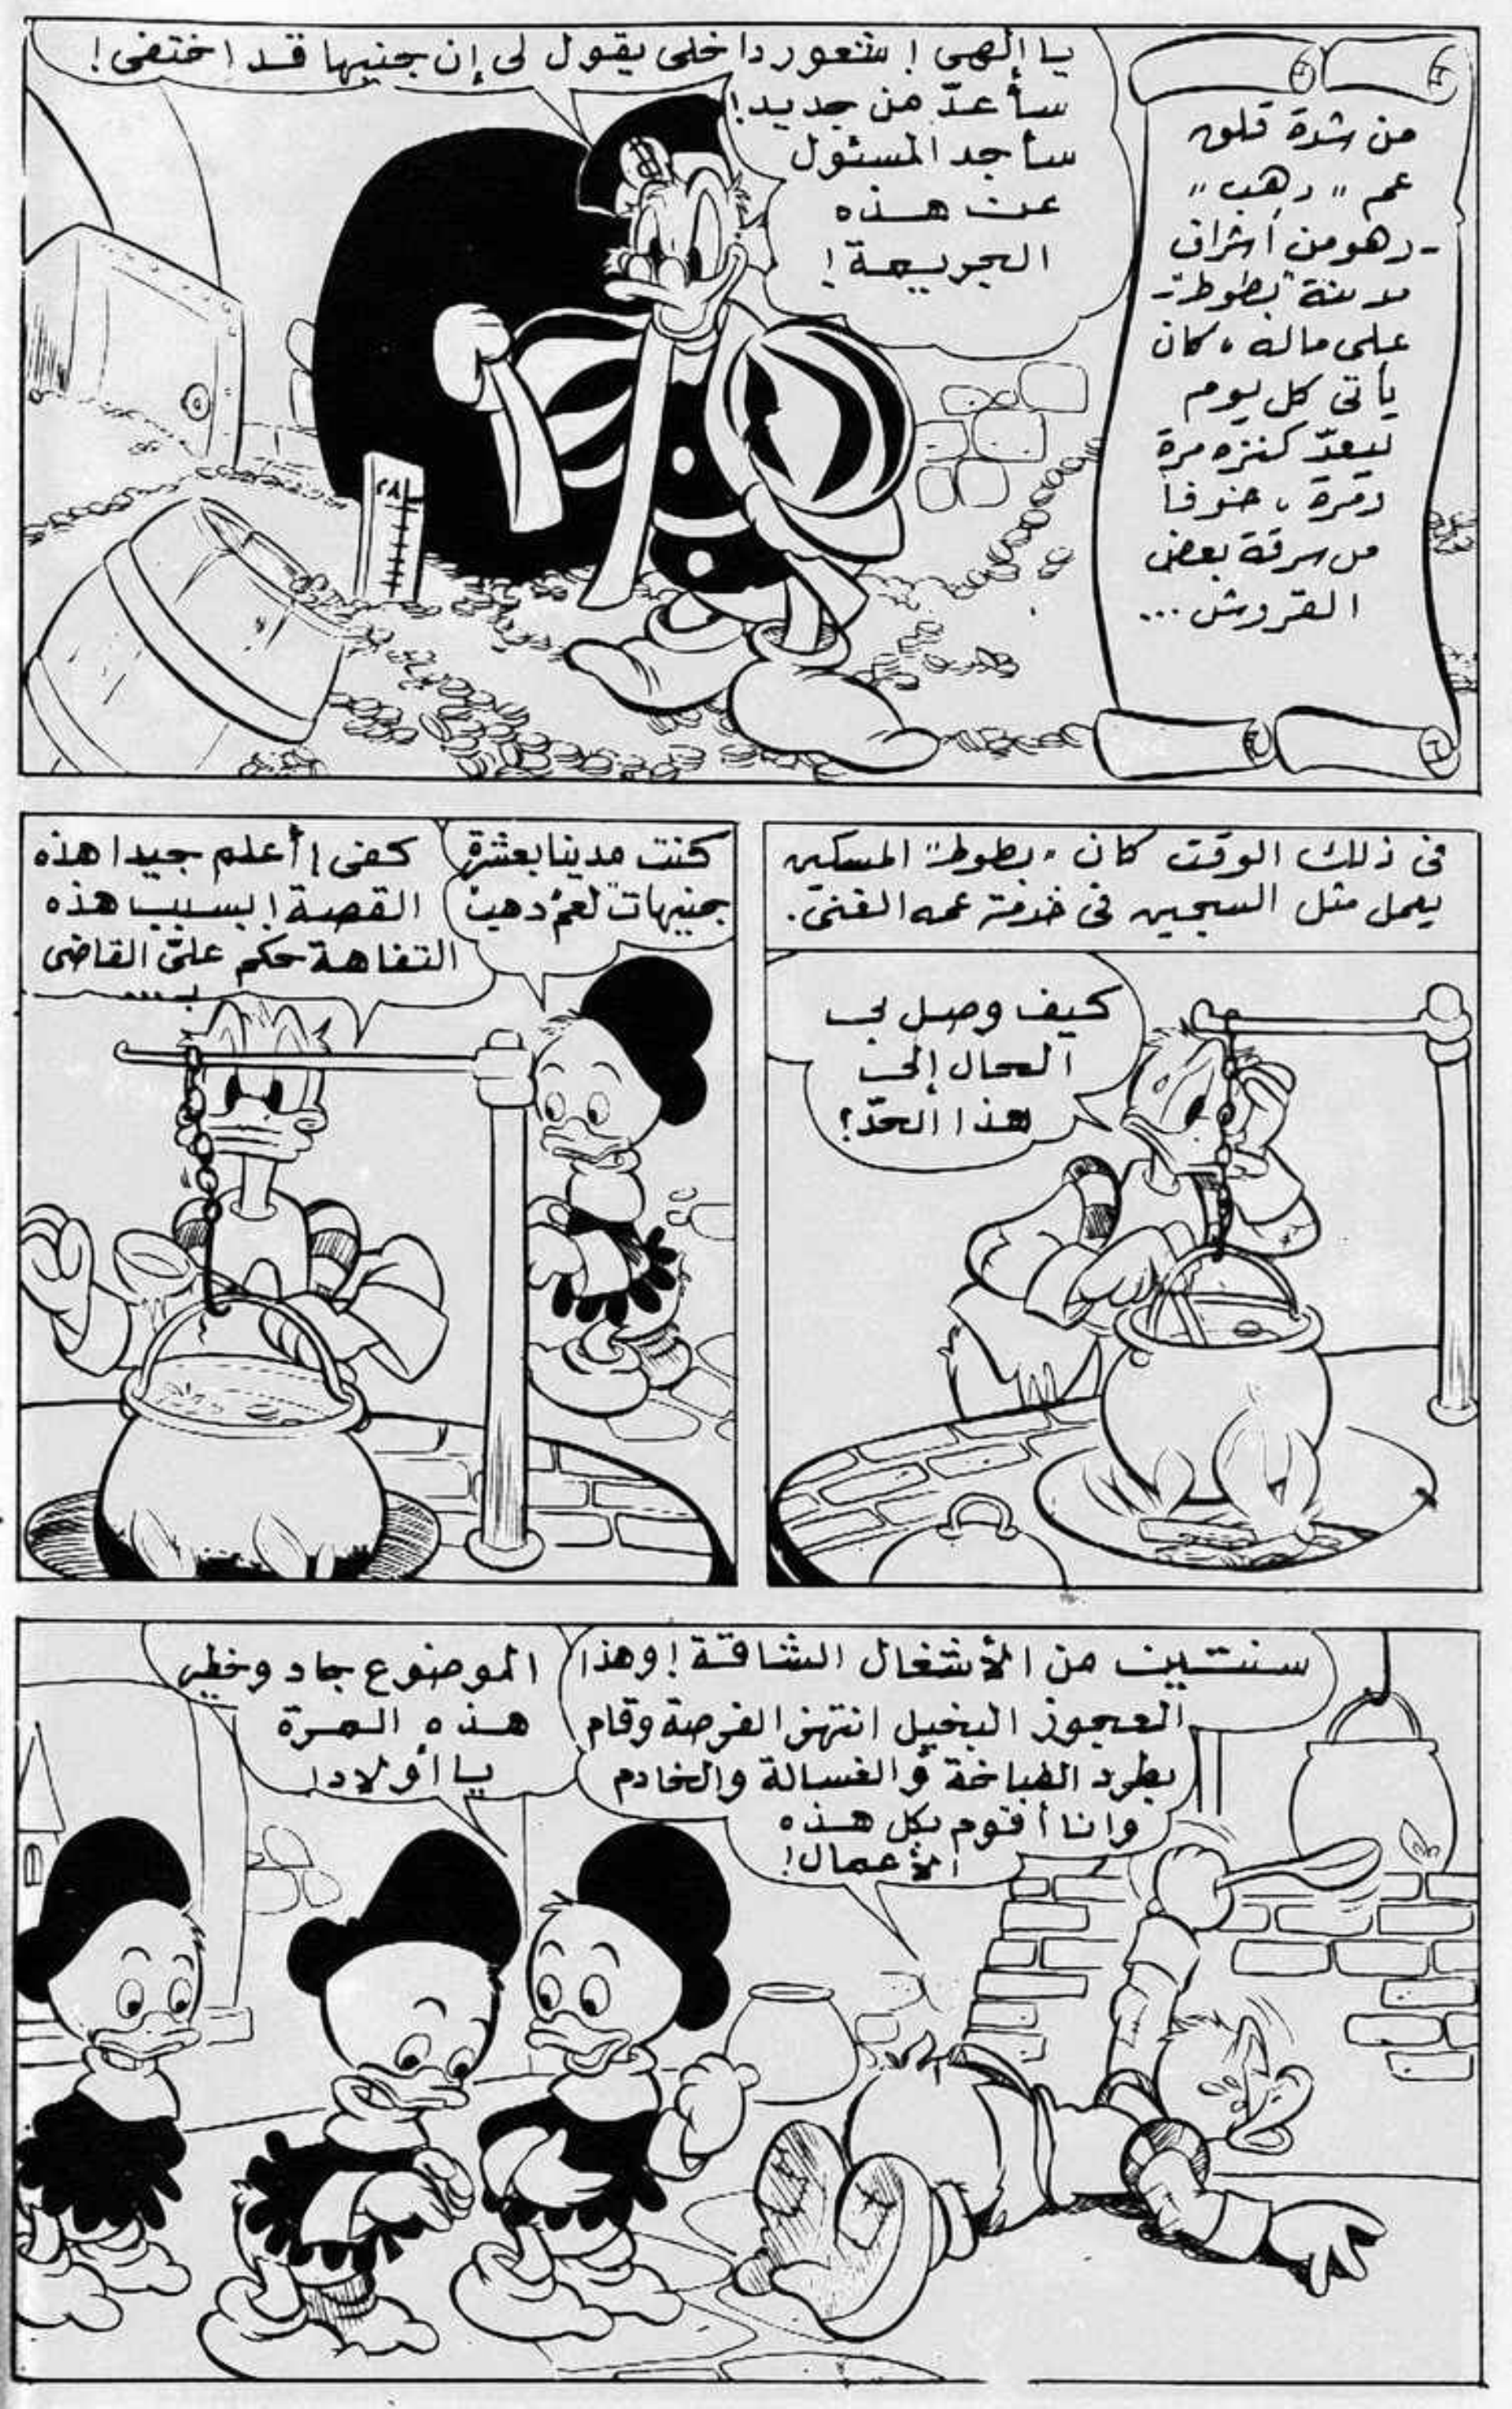 من شدة قلق
عم " دهب "
- وهو من أشراف
مدينة "بطوط" -
على ماله ، كان
يأتى كل يوم
ليعدّ كنزه مرة
ومرة ، خوفا
من سرقة بعض
القروش ...
يا إلهى ! شعور داخلى يقول لى إن جنيها قد اختفى !
سأعدّ من جديد !
سأجد المسئول
عن هذه
الجريمة !
٢٨
فى ذلك الوقت كان "بطوط" المسكين
يعمل مثل السجين فى خدمة عمه الغنى .
كيف وصل بى
الحال إلى
هذا الحدّ ؟
كنت مدينا بعشرة
جنيهات "لعم دهب"
كفى ! أعلم جيدا هذه
القصة ! بسبب هذه
التفاهة حكم علىّ القاضى
بـ ....
سنتين من الأشغال الشاقة ! وهذا
العجوز البخيل انتهز الفرصة وقام
بطرد الطباخة والغسالة والخادم
وانا أقوم بكل هذه
الأعمال !
الموضوع جاد وخطير
هذه المرة
يا أولاد !